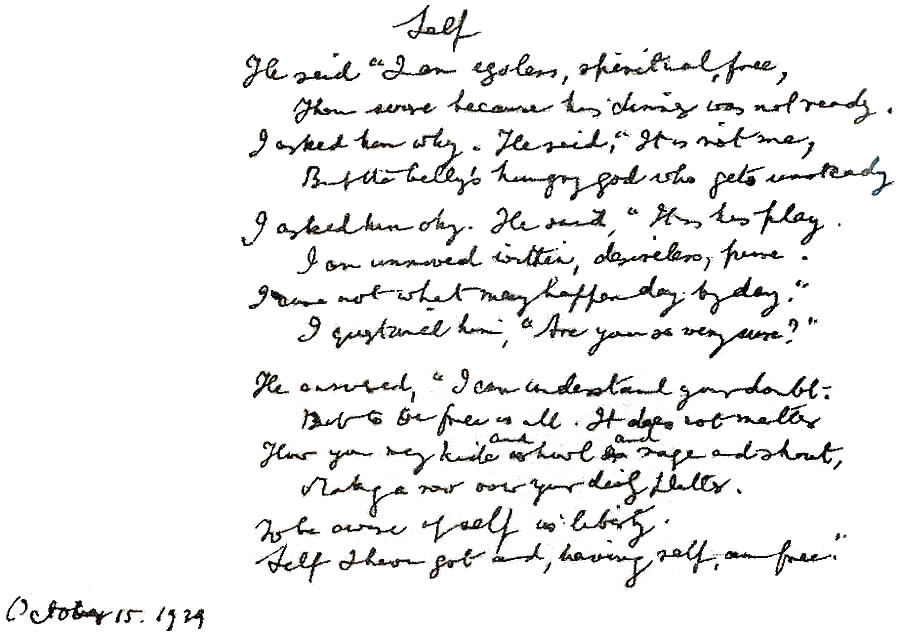 Self
He said "I am egoless, spiritual, free,
Then swore because his dinner was not ready.
I asked him why. He said, "It is not me,
But the belly's hungry god who gets unsteady
I asked him why. He said, "It is his play.
I am unmoved within, desireless, pure.
I care not what may happen day by day."
I questioned him, "Are you so very sure?"
He answered, "I can understand your doubt.
But to be free is all. It does not matter
How you may kick and howl and rage and shout,
Making a row over your daily platter.
To be aware of self is liberty.
Self I have got and, having self, am free."
October 15. 1939